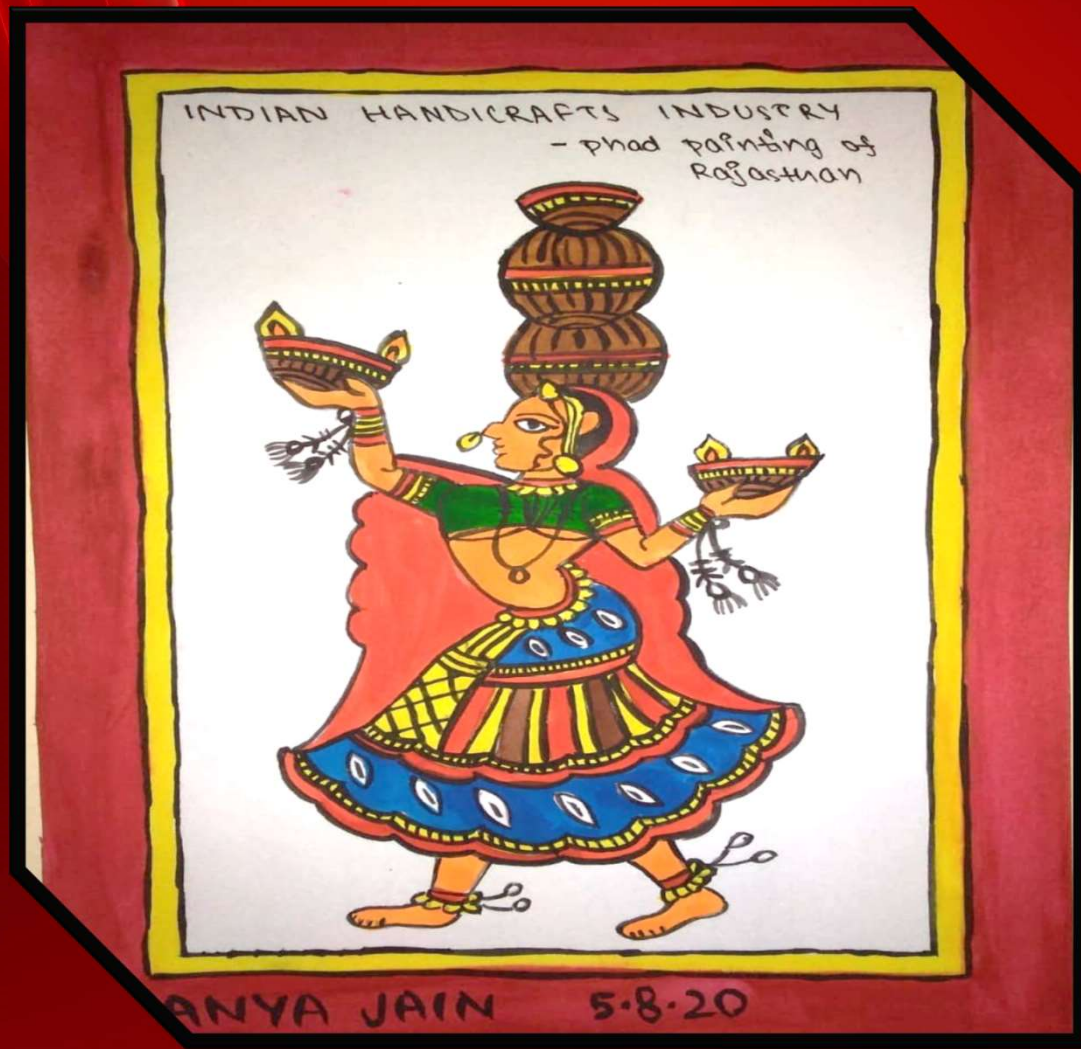 INDIAN HANDICRAFTS INDUSTRY
- phad painting of
Rajasthan
ANYA JAIN 5.8.20